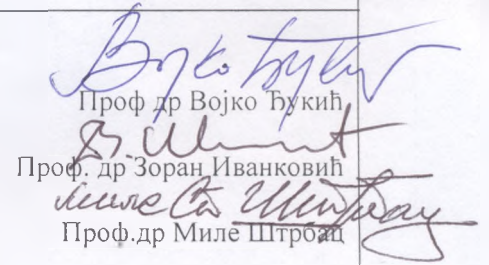 Војко Ђукић
Проф др Војко Ђукић
Проф. др Зоран Иванковић
Миле Штрбац
Проф.др Миле Штрбац